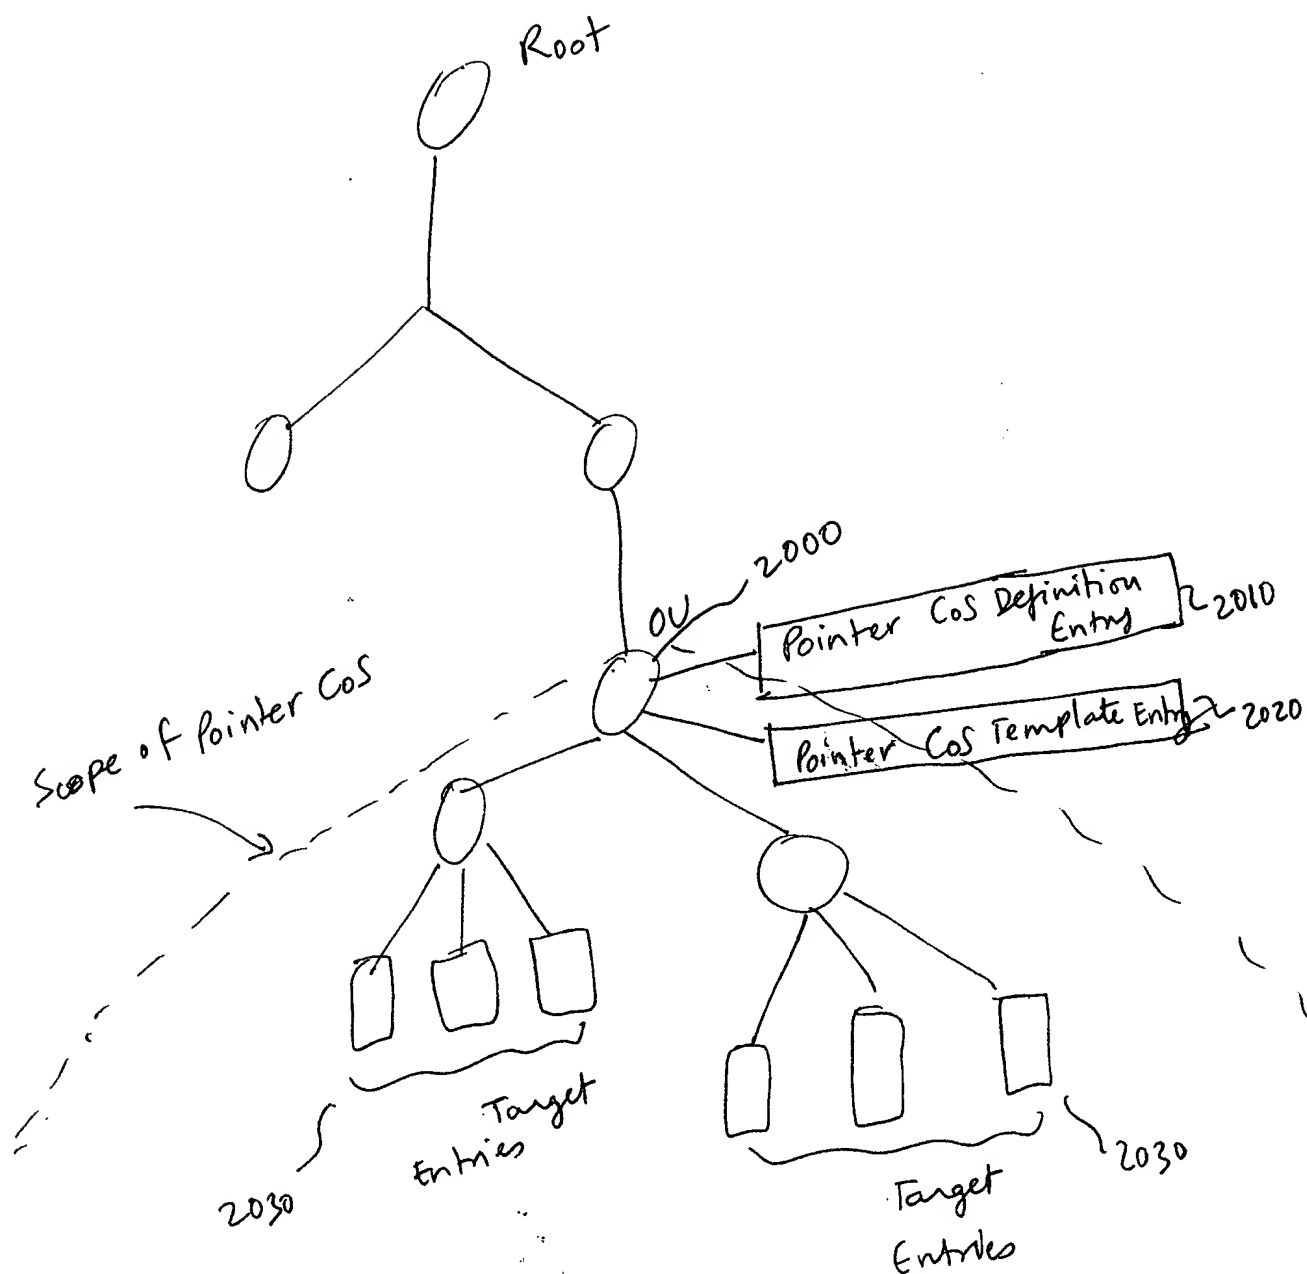 Root
2000
OU
Pointer CoS Definition
Entry
2010
Pointer CoS Template Entry
2020
Scope of Pointer CoS
Target
Entries
2030
Target
Entries
2030